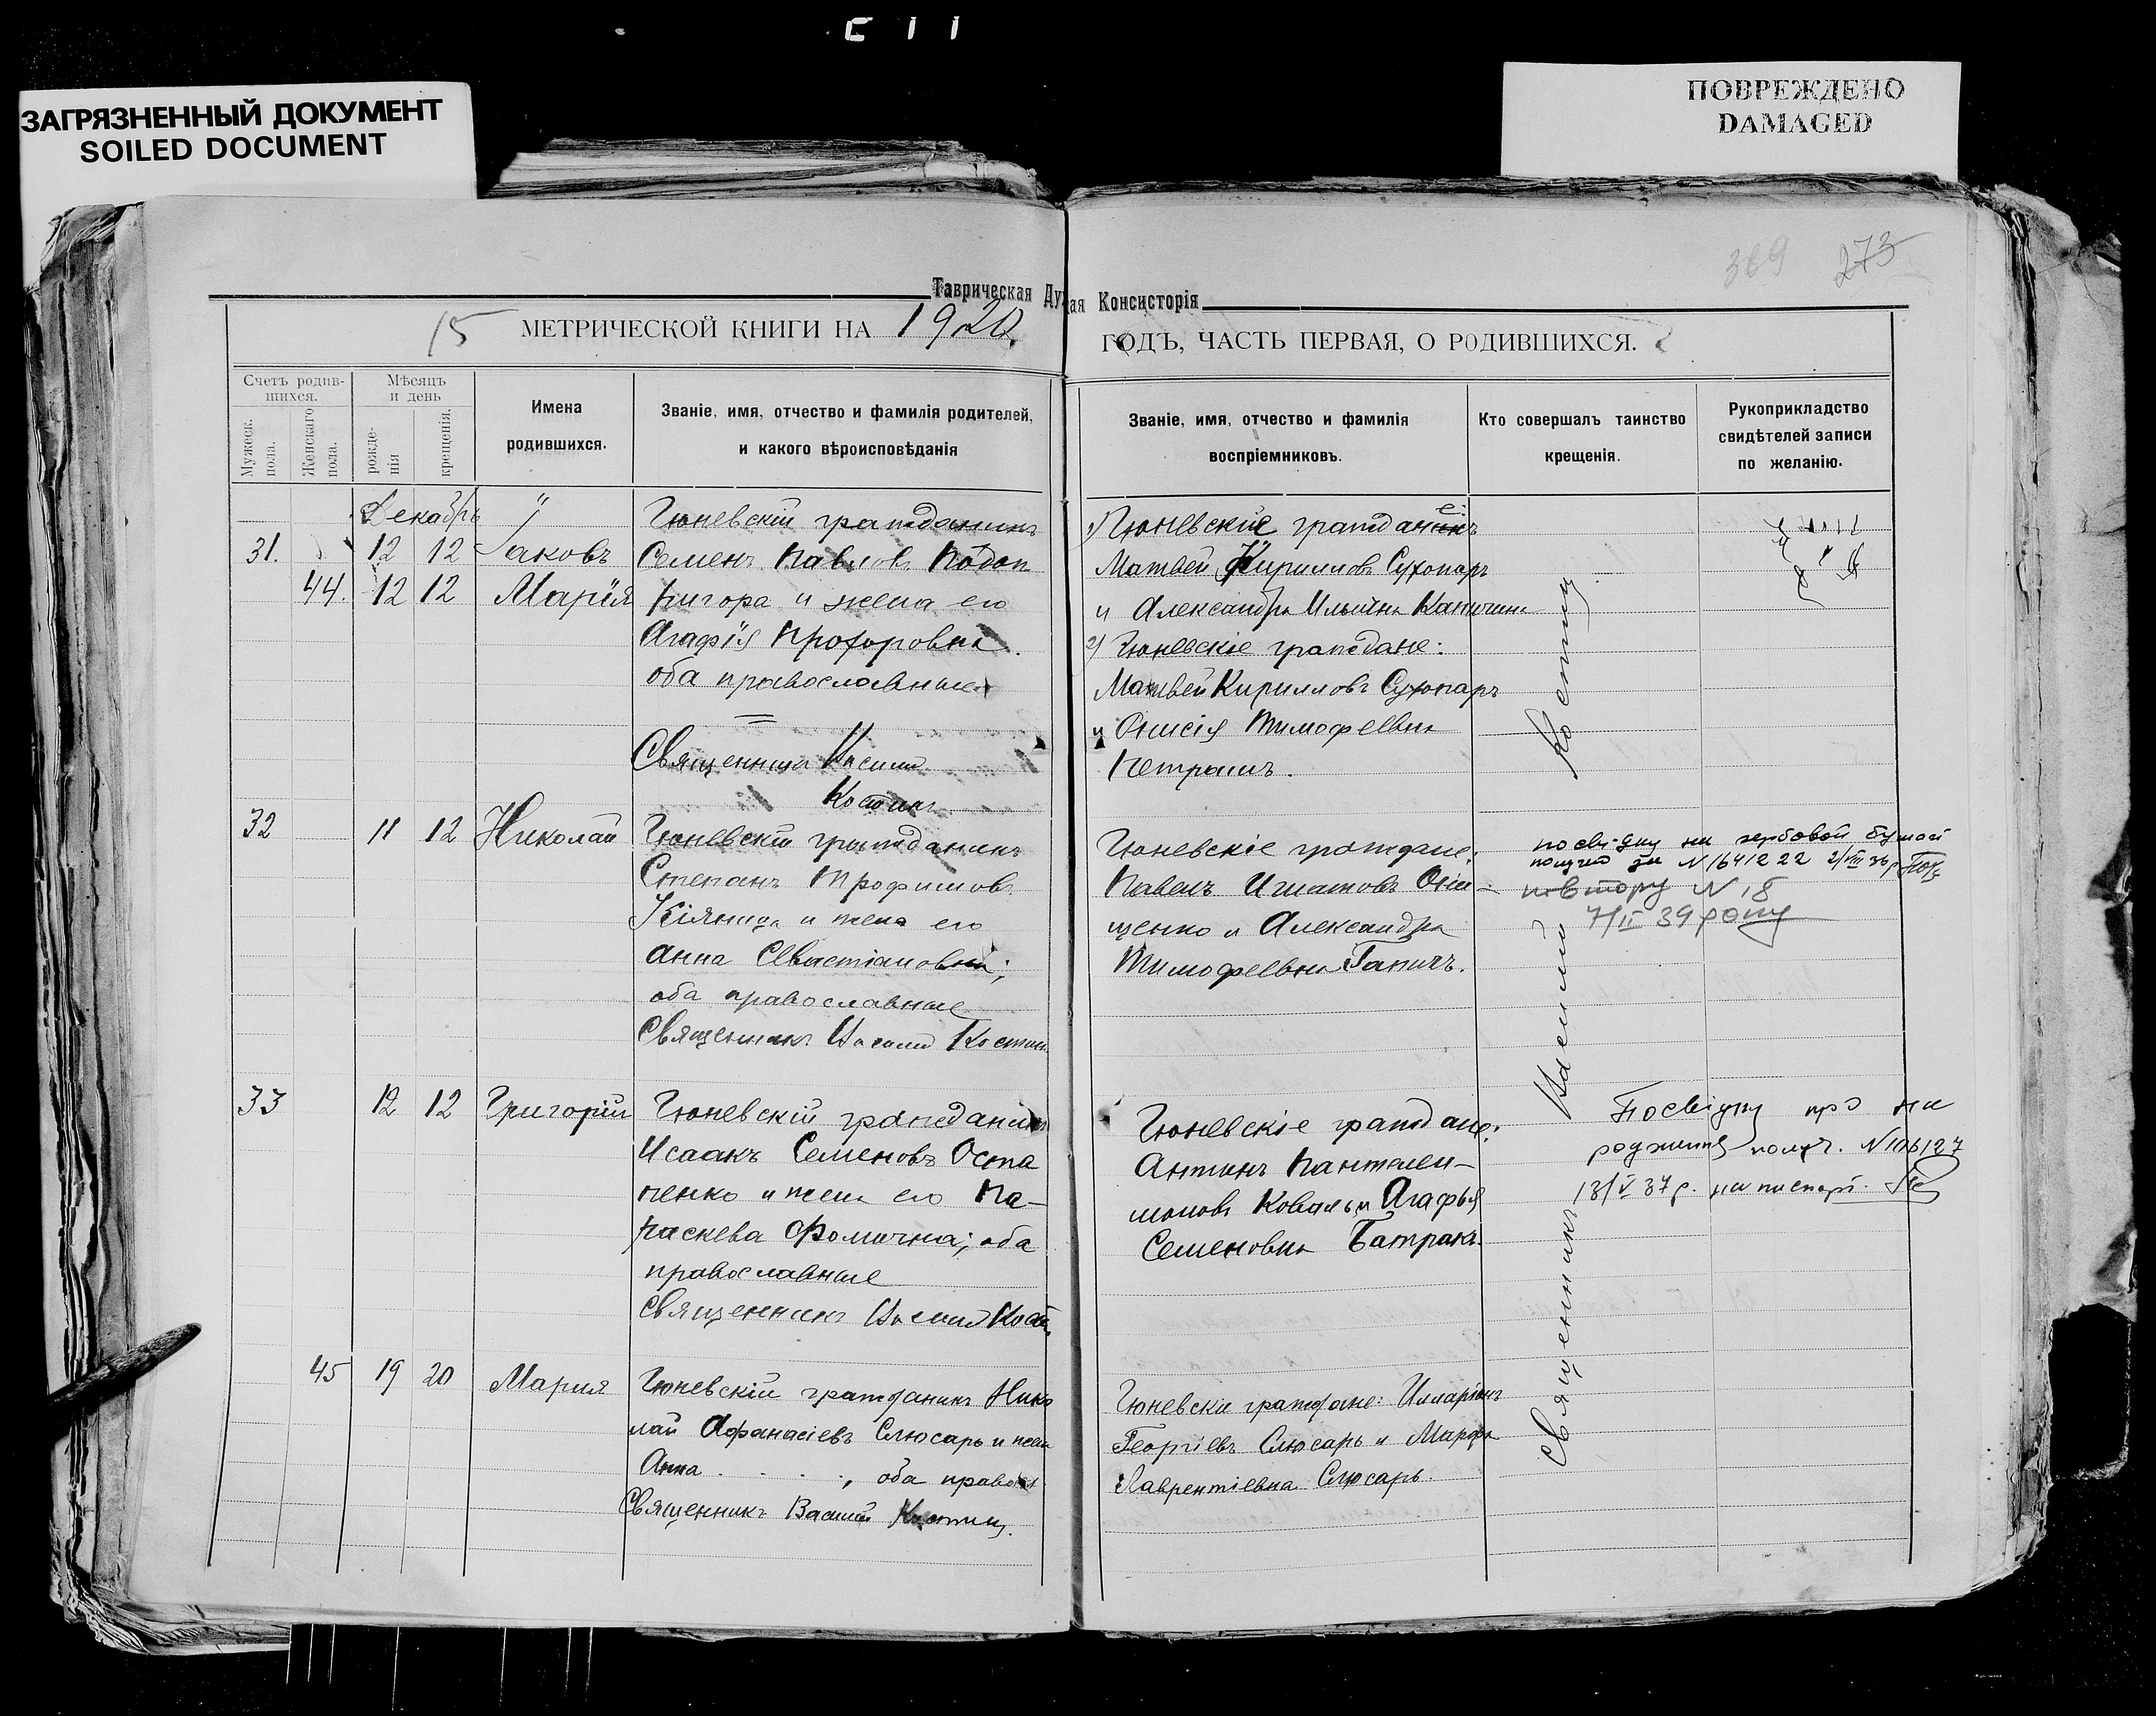 ЗАГРЯЗНЕННЫЙ ДОКУМЕНТ
SOILED DOCUMENT
ПОВРЕЖДЕНО
DAMAGED
369 273
Таврическая Ду
ая Консисторія
15 МЕТРИЧЕСКОЙ КНИГИ НА 1920
ГОДЪ, ЧАСТЬ ПЕРВАЯ, О РОДИВШИХСЯ.
Счетъ родив-
шихся.
Мужеск.
пола.
Женскаго
пола.
Мѣсяцъ
и день
рожде-
нія
крещенія.
Имена
родившихся.
Званіе, имя, отчество и фамилія родителей,
и какого вѣроисповѣданія
Званіе, имя, отчество и фамилія
воспріемниковъ.
Кто совершалъ таинство
крещенія.
Рукоприкладство
свидѣтелей записи
по желанію.
Декабрь
31. 12 12 Іаковъ
44. 12 12 Марія
Гюневскій гражданинъ
Семенъ Павловъ Подоп
ригора и жена его
Агафія Прохоровна.
оба православные
Священникъ Василій
Костин
1) Гюневскіе граждане:
Матвей Кирилловъ Сухопаръ
и Александра Ильина
2) Гюневскіе граждане:
Матвей Кирилловъ Сухопаръ
и Онисія Тимофеевна
32 11 12 Николай
Гюневскій гражданинъ
Степанъ Трофимовъ
Кіяница и жена его
Анна Севастіановна;
оба православные
Священникъ Василій Костин
Гюневскіе граждане:
Павелъ Игнатовъ Они-
щенко и Александра
Тимофеевна Гапичъ.
посвідку на гербовой бумаги
N 164222 2/VIII 36 р
повторну N 18
7/II 39 року
33 12 12 Григорій
Гюневскій гражданинъ
Исаакъ Семеновъ Оста
пенко и жена его Па-
раскева Фомична; оба
православные
Священникъ Василій Костин
Гюневскіе граждане:
Антинъ Пантелеи-
моновъ Коваль и Агафья
Семеновна Батракъ.
Посвідку про на
родження получ. N 106127
13/V 37 р. на паспорт.
45 19 20 Мария
Гюневскій гражданинъ Нико
лай Афанасіевъ Слюсарь и жена
Анна . . . . , оба правосл.
Священникъ Василій Костин.
Гюневскіе граждане: Илларіонъ
Георгіевъ Слюсарь и Марфа
Лаврентіевна Слюсарь.
Священникъ Василий Костин